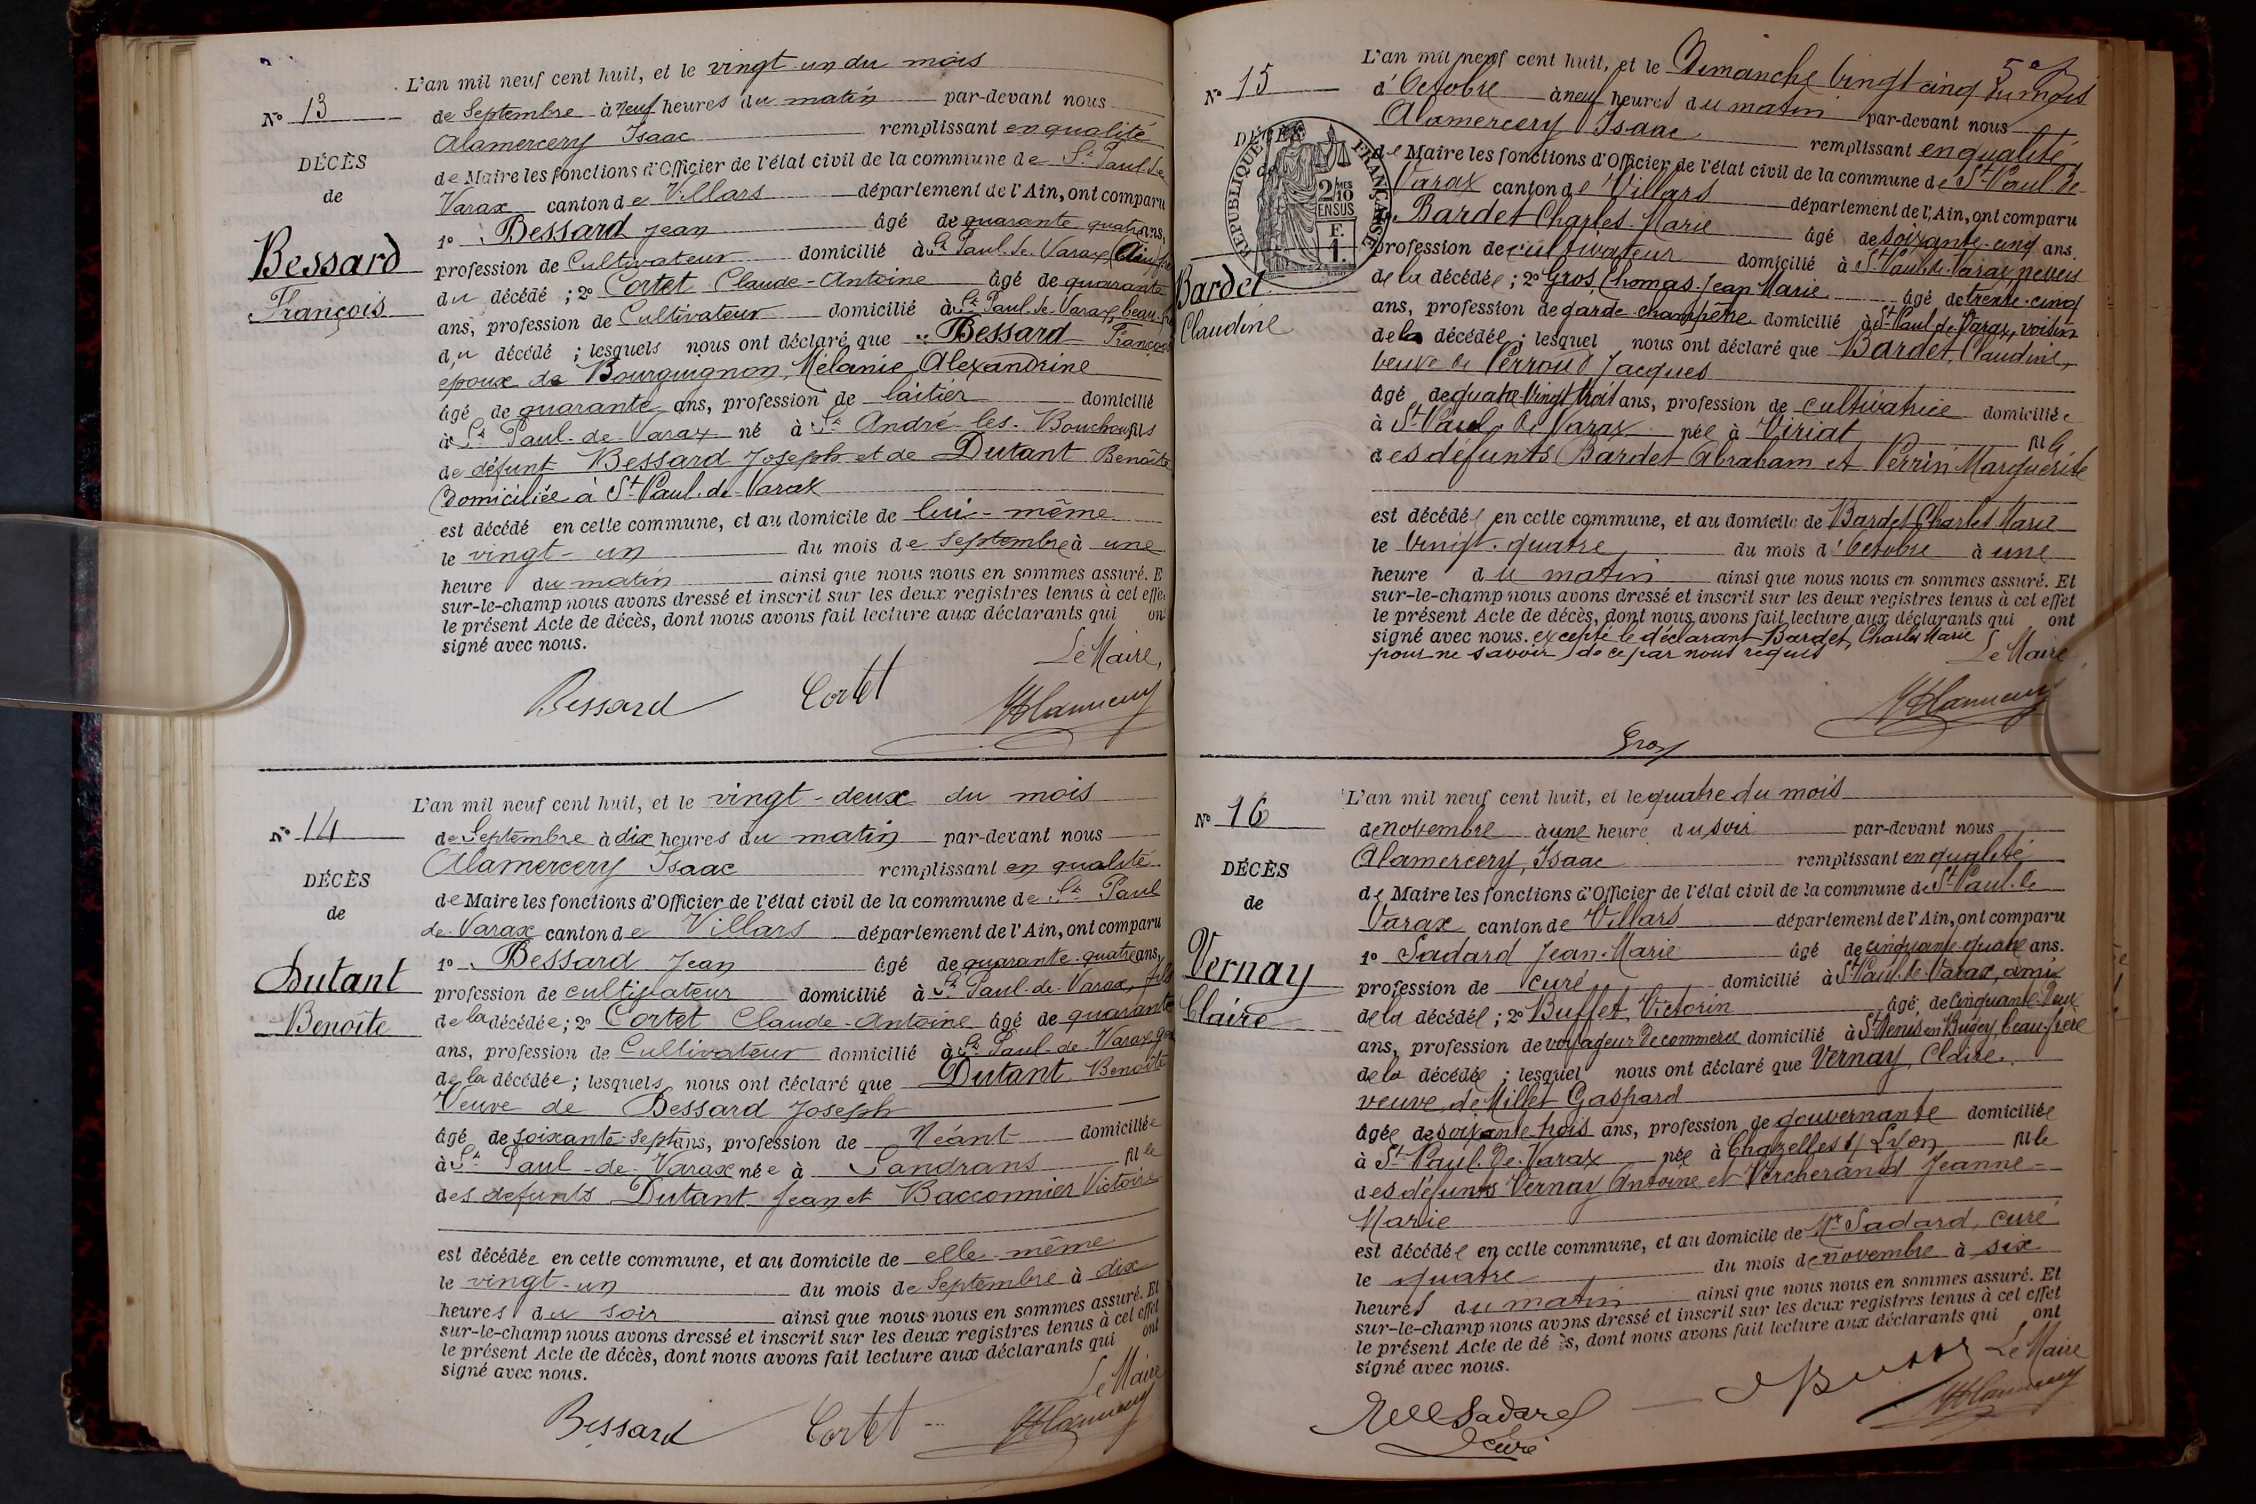 L'an mil neuf cent huit, et le vingt-un du mois
N° 13
de Septembre à neuf heures du matin par-devant nous
Alamercery Isaac remplissant en qualité
DÉCÈS
de Maire les fonctions d'Officier de l'état civil de la commune de St Paul de
de
Varax canton de Villars département de l'Ain, ont comparu
1° Bessard Jean âgé de quarante quatre ans,
Bessard
profession de Cultivateur domicilié à St Paul de Varax
François
du décédé ; 2° Cortet Claude-Antoine âgé de quarante
ans, profession de Cultivateur domicilié à St Paul de Varax, beau-
du décédé ; lesquels nous ont déclaré que Bessard François
époux de Bourguignon, Mélanie, Alexandrine
âgé de quarante ans, profession de laitier domicilié
à St Paul-de-Varax né à St André-les-Bouchoux fils
de défunt Bessard Joseph et de Dutant Benoîte
domiciliée à St Paul-de-Varax
est décédé en cette commune, et au domicile de lui-même
le vingt-un du mois de Septembre à une
heure du matin ainsi que nous nous en sommes assuré. E
sur-le-champ nous avons dressé et inscrit sur les deux registres tenus à cet effe
le présent Acte de décès, dont nous avons fait lecture aux déclarants qui on
signé avec nous.
Le Maire,
Bessard Cortet
L'an mil neuf cent huit, et le vingt-deux du mois
N° 14
de Septembre à dix heures du matin par-devant nous
Alamercery Isaac remplissant en qualité
DÉCÈS
de Maire les fonctions d'Officier de l'état civil de la commune de St Paul
de
de-Varax canton de Villars département de l'Ain, ont comparu
1° Bessard Jean âgé de quarante-quatre ans,
Dutant
profession de cultivateur domicilié à St Paul-de-Varax, fils
Benoîte
de la décédée ; 2° Cortet Claude-Antoine âgé de quarante
ans, profession de Cultivateur domicilié à St Paul-de-Varax
de la décédée ; lesquels nous ont déclaré que Dutant Benoîte
Veuve de Bessard Joseph
âgé de soixante-sept ans, profession de Néant domiciliée
à St Paul-de-Varax née à Sandrans fille
des défunts Dutant Jean et Bacconnier Victoire
est décédée en cette commune, et au domicile de elle-même
le vingt-un du mois de Septembre à dix
heures du soir ainsi que nous nous en sommes assuré. Et
sur-le-champ nous avons dressé et inscrit sur les deux registres tenus à cet effet
le présent Acte de décès, dont nous avons fait lecture aux déclarants qui ont
signé avec nous.
Le Maire
Bessard Cortet
5e
L'an mil neuf cent huit, et le Dimanche vingt cinq du mois
N° 15
d'Octobre à neuf heures du matin par-devant nous
Alamercery Isaac remplissant en qualité
DÉCÈS
de Maire les fonctions d'Officier de l'état civil de la commune de St Paul de
de
RÉPUBLIQUE FRANÇAISE
2/10 EN SUS
F. 1.
Varax canton de Villars département de l'Ain, ont comparu
Bardet Charles Marie âgé de soixante-cinq ans.
profession de cultivateur domicilié à St Paul de Varax, neveu
Bardet
Claudine
de la décédée ; 2° Gros, Thomas-Jean Marie âgé de trente-cinq
ans, profession de garde-champêtre domicilié à St Paul de Varax, voisin
de la décédée ; lesquel nous ont déclaré que Bardet, Claudine,
veuve de Perroud Jacques
âgé de quatre-vingt trois ans, profession de cultivatrice domiciliée
à St Paul de Varax née à Viriat fille
des défunts Bardet Abraham et Perrin Marguerite
est décédée en cette commune, et au domicile de Bardet Charles Marie
le vingt-quatre du mois d'Octobre à une
heure du matin ainsi que nous nous en sommes assuré. Et
sur-le-champ nous avons dressé et inscrit sur les deux registres tenus à cet effet
le présent Acte de décès, dont nous avons fait lecture aux déclarants qui ont
signé avec nous. excepté le déclarant Bardet, Charles Marie
pour ne savoir, de ce par nous requis
Le Maire
Gros
L'an mil neuf cent huit, et le quatre du mois
N° 16
de novembre à une heure du soir par-devant nous
Alamercery, Isaac remplissant en qualité
DÉCÈS
de Maire les fonctions d'Officier de l'état civil de la commune de St Paul de
de
Varax canton de Villars département de l'Ain, ont comparu
1° Sadard Jean-Marie âgé de cinquante-quatre ans.
Vernay
profession de curé domicilié à St Paul de Varax, ami
Claire
de la décédée ; 2° Buffet, Victorin âgé de cinquante deux
ans, profession de voyageur de commerce domicilié à St Denis en Bugey, beau-frère
de la décédée ; lesquel nous ont déclaré que Vernay, Claire,
veuve de Millet Gaspard
âgée de soixante trois ans, profession de gouvernante domiciliée
à St Paul de Varax née à Chazelles s/ Lyon fille
des défunts Vernay Antoine et Vercherand Jeanne-
Marie
est décédée en cette commune, et au domicile de Mr Sadard, curé
le quatre du mois de novembre à six
heures du matin ainsi que nous nous en sommes assuré. Et
sur-le-champ nous avons dressé et inscrit sur les deux registres tenus à cet effet
le présent Acte de décès, dont nous avons fait lecture aux déclarants qui ont
signé avec nous.
Le Maire
Sadard
curé